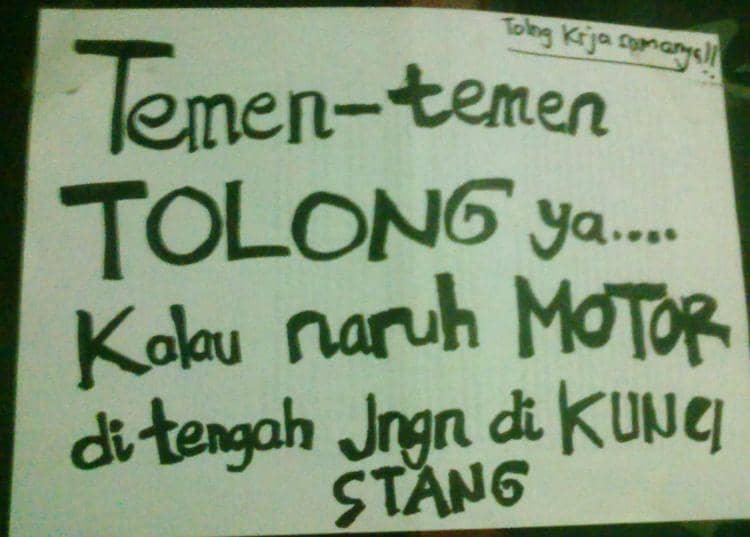 Tolng Krja samanya!!
Temen-temen
TOLONG ya....
Kalau naruh MOTOR
di tengah Jngn di KUNCI
STANG